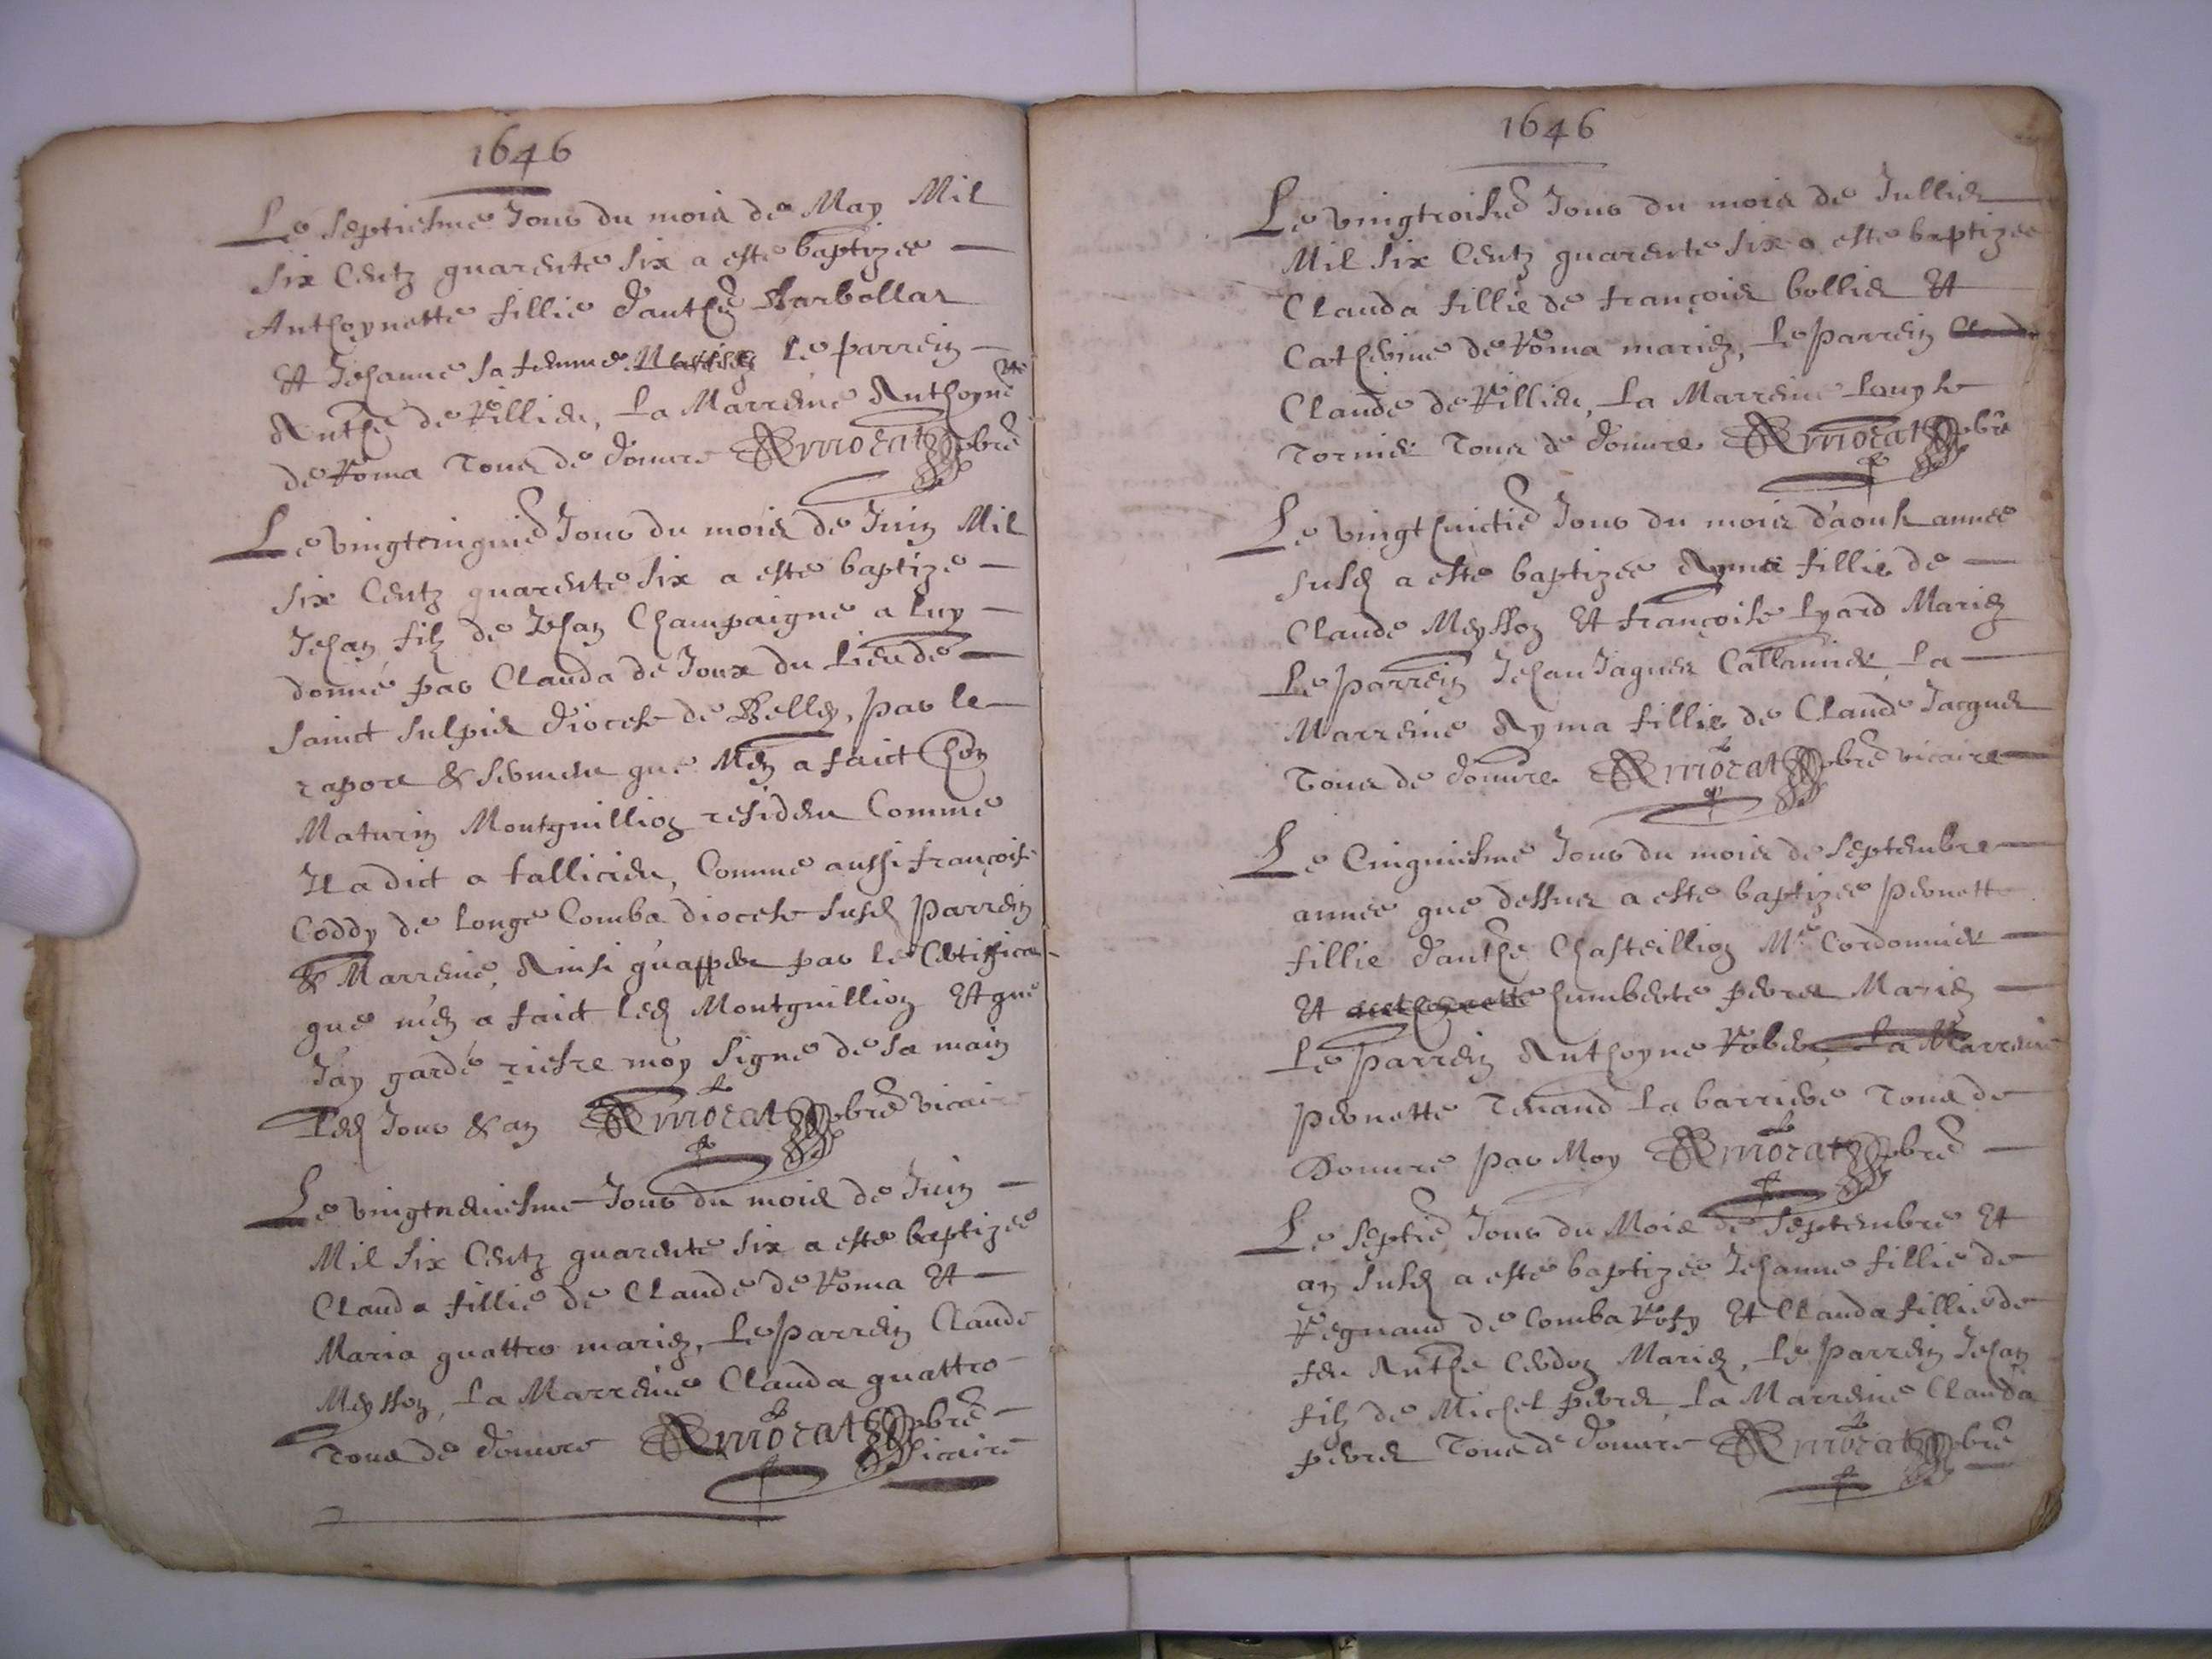 1646
Le septiesme Jour du mois de May Mil
six Centz quarente six a este baptizee
Anthoynette fillie d'anthe Barbollat
Et Jehanne sa femme Le parrein
Anthe de Villier, La Marreine Anthoynette
de Roma Tous de douvre AMorat pbre
Le vingtcinquie Jour du mois de Juin Mil
six Centz quarente six a este baptize
Jehan filz de Jehan Champaigne a luy
donné par Clauda de Joux du Lieu de
sainct sulpis diocese de Belley, par le
rapore & sermen que M'en a faict hon
Maturin Montguillion residen Comme
Il a dict a tallicieu, Comme aussi françoise
Coddy de longe Comba diocese susd parrein
& Marreine, Ainsi qu'apper par le Certificat
que m'en a faict led Montguillion Et que
J'ay gardé riere moy signé de sa main
Led Jour & an AMorat pbre vicaire
Le vingtneuiesme Jour du mois de Juin
Mil six Centz quarente six a este baptizee
Clauda fillie de Claude de Roma Et
Maria quattro mariez, Le parrein Claude
Meysson, La Marreine Clauda quattro
Tous de douvre AMorat pbre
vicaire
1646
Le vingtroisie Jour du mois de Jullier
Mil six Centz quarente six a este baptizee
Clauda fillie de françois bollier Et
Catherine de Roma mariez, Le parrein Claude
Claude de Villier, La Marreine Louyse
Tornier Tous de douvre AMorat pbre
Le vingthuictie Jour du mois d'aoust annee
susd a este baptizee Ayma fillie de
Claude Meysson Et françoise Lyard Mariez
Le parrein Jehan Jaques Callamier La
Marreine Ayma fillie de Claude Jacques
Tous de douvre AMorat pbre vicaire
Le Cinquiesme Jour du mois de septembre
annee que dessus a este baptizee pernette
fillie d'anthe Chasteillion Me Cordonnier
Et humberte perret Mariez
Le parrein Anthoyne Rober, La Marreine
pernette Tenand La barriere Tous de
Douvre par Moy AMorat pbre
Le septie Jour du Mois de septembre Et
an susd a este baptizee Jehanne fillie de
Regnaud de Comba Rosy Et Clauda fillie de
feu Anthe Cerdon Mariez, Le parrein Jehan
filz de Michel perret La Marreine Clauda
perret Tous de douvre AMorat pbre